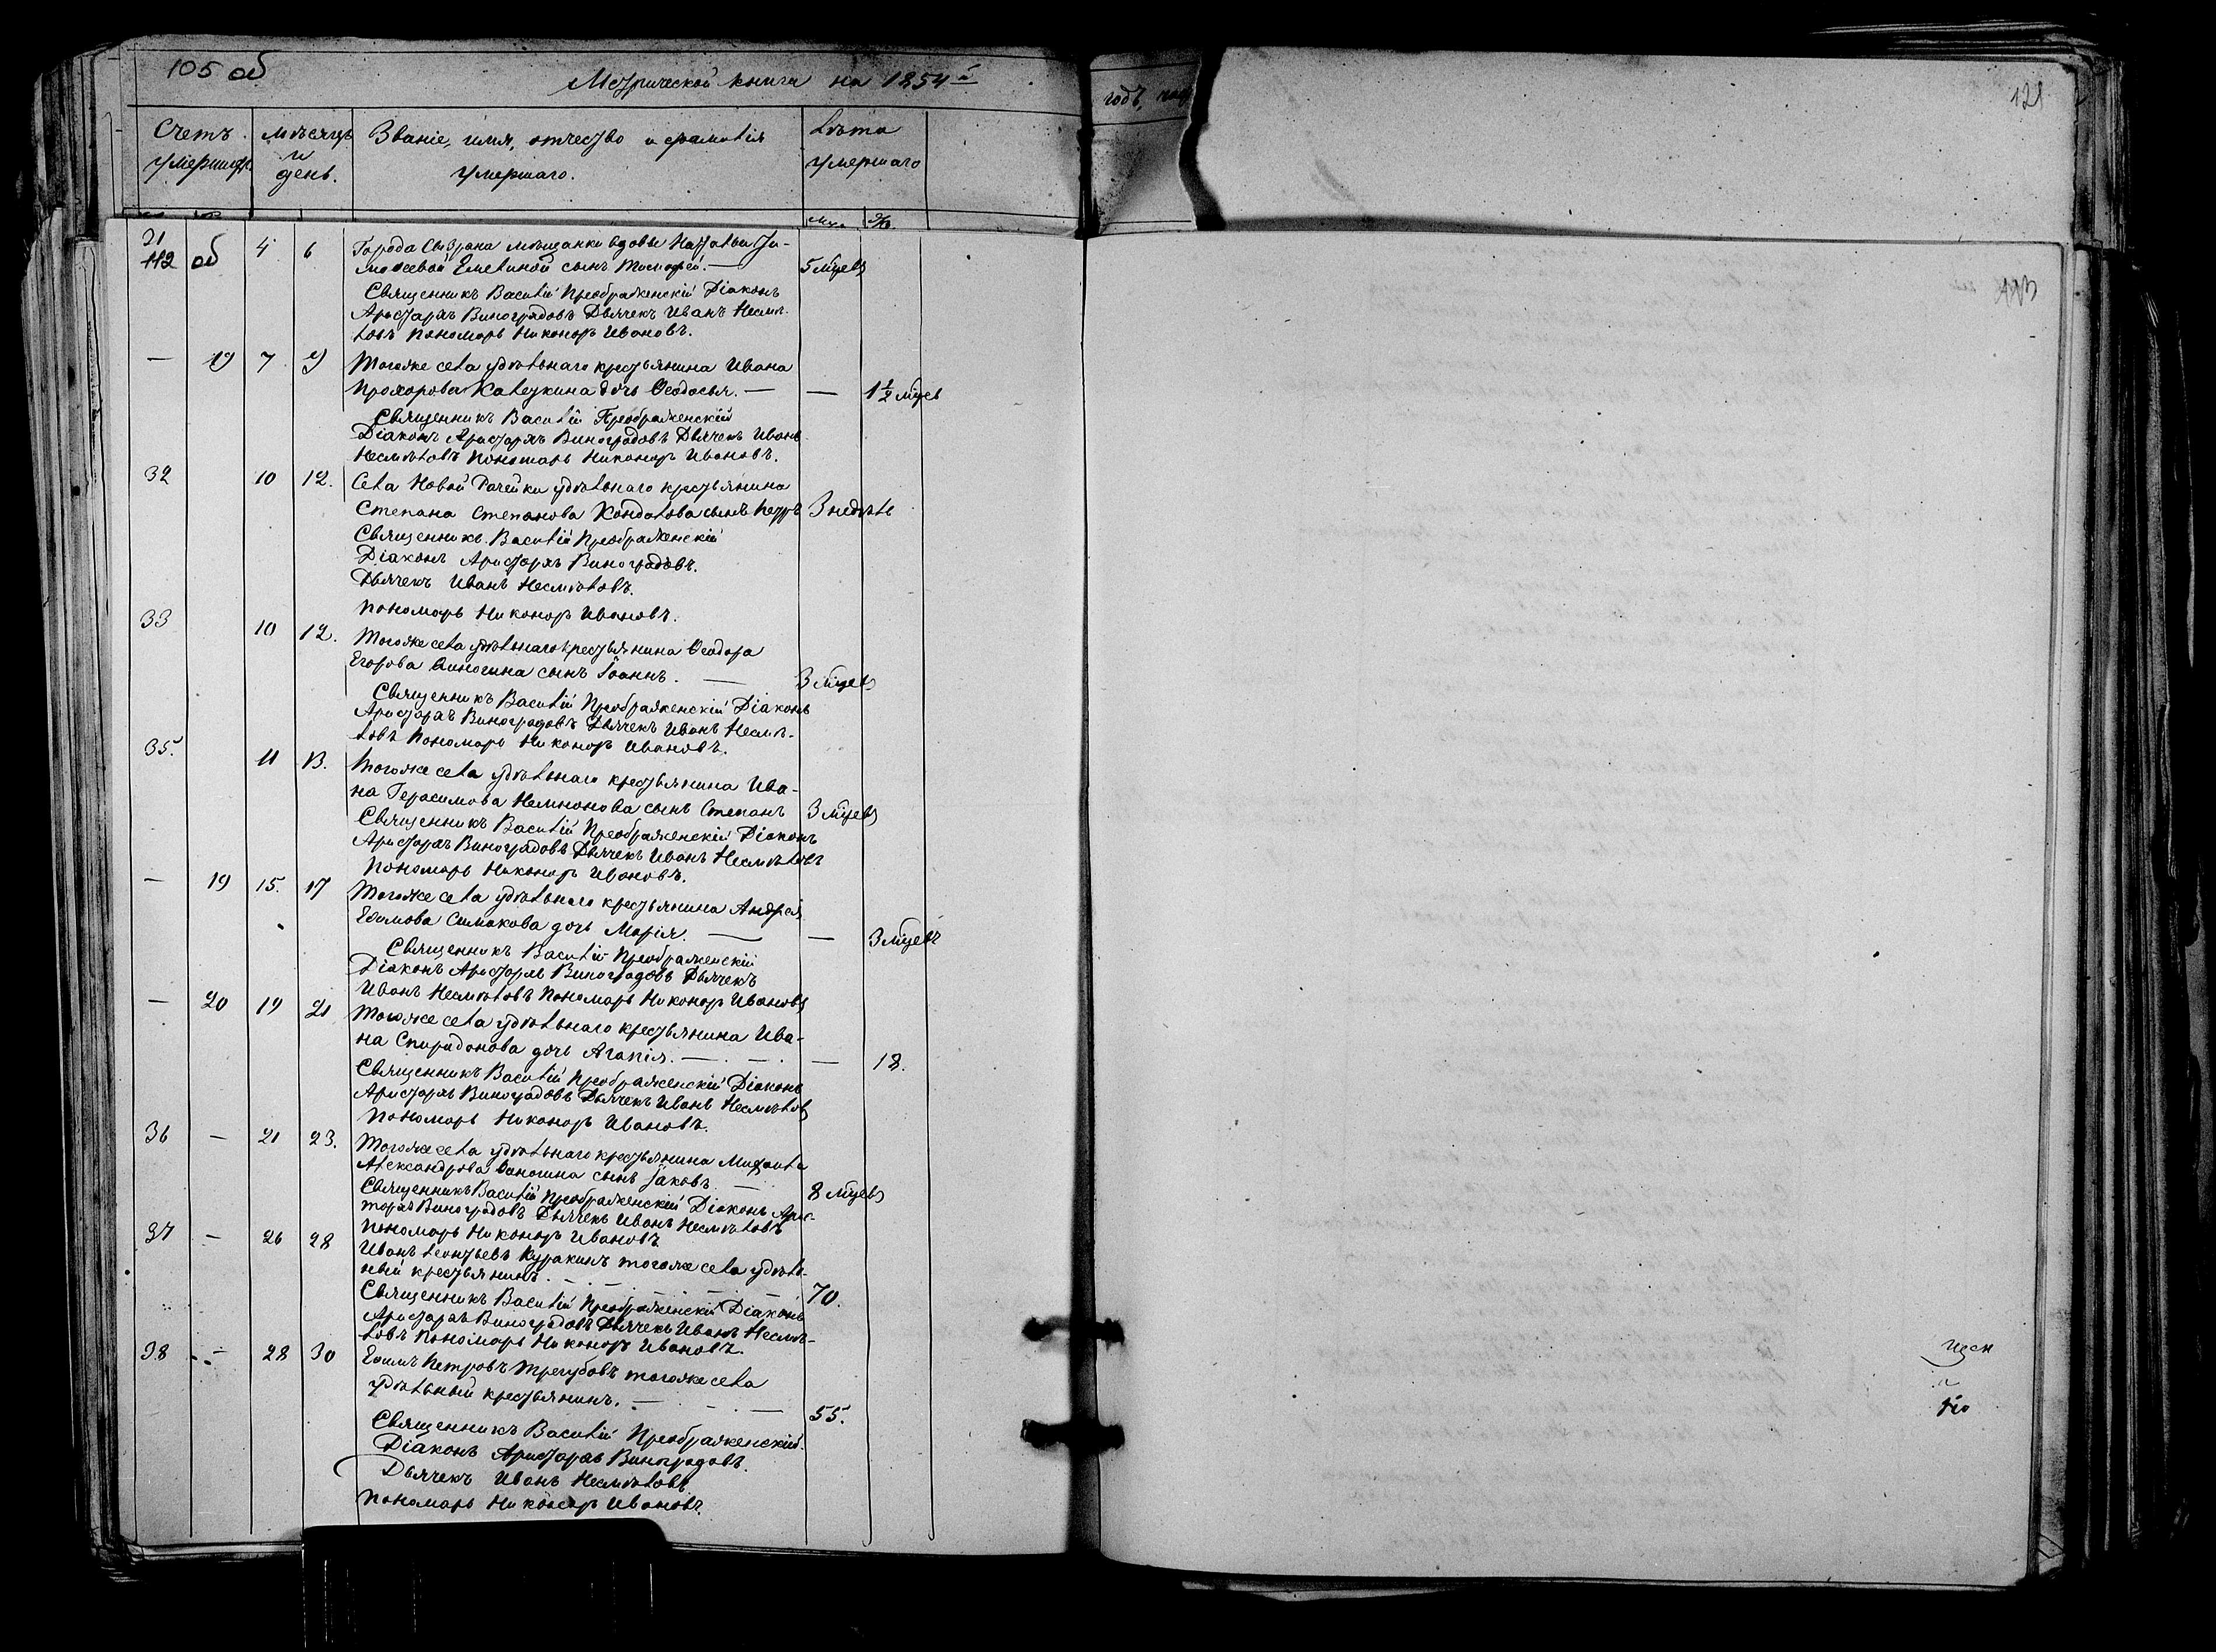 105 об
Метрической книги на 1854й
годъ,
121
Счетъ умершихъ.
мѣсяцъ и день.
Званіе, имя, отчество и фамилія умершаго.
Лѣта умершаго
31 4 6 Города Сызрана мѣщанки вдовы Натальи Ти-
112 об
мофеевой Емелиной сынъ Тимофей. — 5 мѣцевъ
Священникъ Василій Преображенскій Діаконъ
Аристархъ Виноградовъ Дьячекъ Иванъ Несмѣ-
ловъ Пономарь Никоноръ Ивановъ.
— 7 9 Тогоже села удѣльнаго крестьянина Ивана
Прохорова дочь Ѳеодосья. — — 1½ мѣцев
Священникъ Василій Преображенскій
Діаконъ Аристархъ Виноградовъ Дьячекъ Иванъ
Несмѣловъ Пономарь Никоноръ Ивановъ.
32 10 12. Села Новой Рачейки удѣльнаго крестьянина
Степана Степанова сынъ Петръ 3 недѣль
Священникъ Василій Преображенскій
Діаконъ Аристархъ Виноградовъ.
Дьячекъ Иванъ Несмѣловъ.
Пономарь Никоноръ Ивановъ.
33 10 12. Тогоже села удѣльнаго крестьянина Ѳеодора
Егорова сынъ Іоаннъ. — 3 мѣцевъ
Священникъ Василій Преображенскій Діаконъ
Аристархъ Виноградовъ Дьячекъ Иванъ Несмѣ-
ловъ Пономарь Никоноръ Ивановъ.
35. 11 13. Тогоже села удѣльнаго крестьянина Ива-
на Герасимова сынъ Степанъ 3 мѣцевъ
Священникъ Василій Преображенскій Діаконъ
Аристархъ Виноградовъ Дьячекъ Иванъ Несмѣловъ
Пономарь Никоноръ Ивановъ.
— 19 15. 17 Тогоже села удѣльнаго крестьянина Андрея
Симакова дочь Марія. — — 3 мѣцевъ
Священникъ Василій Преображенскій
Діаконъ Аристархъ Виноградовъ Дьячекъ
Иванъ Несмѣловъ Пономарь Никоноръ Ивановъ
— 20 19 21 Тогоже села удѣльнаго крестьянина Ива-
на Спиридонова дочь Агапія. — — 18.
Священникъ Василій Преображенскій Діаконъ
Аристархъ Виноградовъ Дьячекъ Иванъ Несмѣловъ
Пономарь Никоноръ Ивановъ.
36 — 21 23. Тогоже села удѣльнаго крестьянина Михаила
Александрова сынъ Іаковъ — 8 мѣцевъ
Священникъ Василій Преображенскій Діаконъ Арис-
тархъ Виноградовъ Дьячекъ Иванъ Несмѣловъ
Пономарь Никоноръ Ивановъ
37 — 26 28 Иванъ Леонтьевъ Куракинъ тогоже села удѣль-
ный крестьянинъ. — 70.
Священникъ Василій Преображенскій Діаконъ
Аристархъ Виноградовъ Дьячекъ Иванъ Несмѣ-
ловъ Пономарь Никоноръ Ивановъ.
38 — 28 30 Ефимъ Петровъ Трегубовъ тогоже села
удѣльный крестьянинъ. — 55.
Священникъ Василій Преображенскій.
Діаконъ Аристархъ Виноградовъ.
Дьячекъ Иванъ Несмѣловъ
Пономарь Никоноръ Ивановъ.